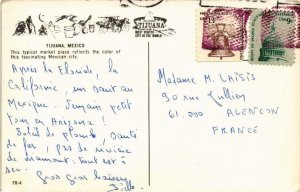 TIJUANA, MEXICO
This typical market place reflects the color of
this fascinating Mexican city.
TIJUANA
MOST VISITED
CITY IN THE WORLD
Après la Floride, la
Californie, un saut au
Mexique... Demain petit
tour en Arizona!
Soleil de plomb, santé
de fer, pas de rivière
de diamant: tout est à
sec.
Gros gros baisers
FR-4
Madame M. LAISIS
90 rue Jullien
61.000 ALENÇON
FRANCE